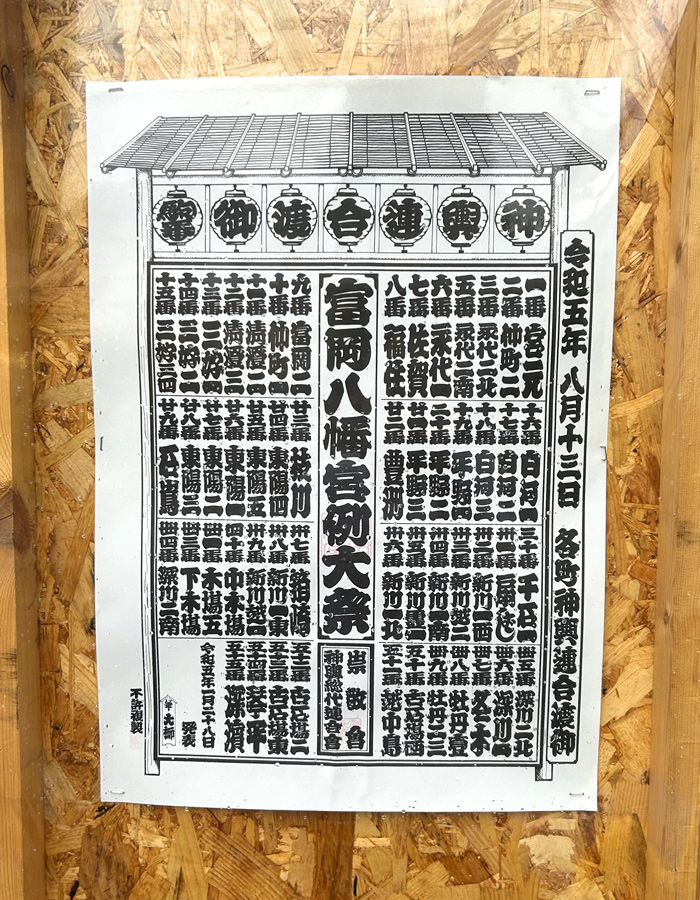 神輿連合渡御駒番
令和五年 八月十三日 各町神輿連合渡御
一番 宮元
二番 仲町二
三番 永代二北
五番 永代二南
六番 永代一
七番 佐賀
八番 福住
富岡八幡宮例大祭
九番 富岡二
十番 仲町一
十一番 清澄二
十二番 清澄三
十三番 三好一
十四番 三好二
十五番 三好三四
十六番 白河一
十七番 白河二
十八番 白河三
十九番 平野一
二十番 平野二
廿一番 平野三
廿二番 豊洲
廿三番 枝川
廿四番 東陽四
廿五番 東陽五
廿六番 東陽一
廿七番 東陽二
廿八番 東陽三
廿九番 石島
三十番 千石一
卅一番 扇橋
卅二番 新川一西
卅三番 新川二
卅四番 新川一南
卅五番
卅六番 新川一北
卅七番 箱崎
卅八番 新川一東
卅九番 新川越一
四十番 中木場
卌一番 木場五
卌三番 下木場
卌四番 深川二南
卌五番 深川二北
卌六番 深川一
卌七番 冬木
卌八番 牡丹壹
卌九番 牡丹二三
五十番 古石場団
五十一番 越中島
崇敬會
神輿総代連合會
五十二番 古石場二
五十三番 古石場東
五十四番 琴平
五十五番 深濱
令和五年一月二十八日
発表
不許複製